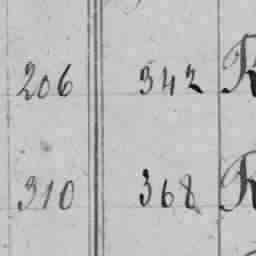 206 342 R
310 368 R